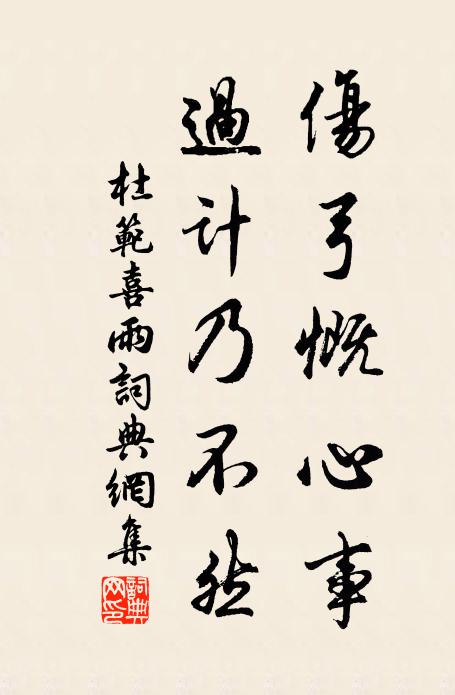 傷弓慨心事
過計乃不然
杜範喜雨詞典網集
詞典网印